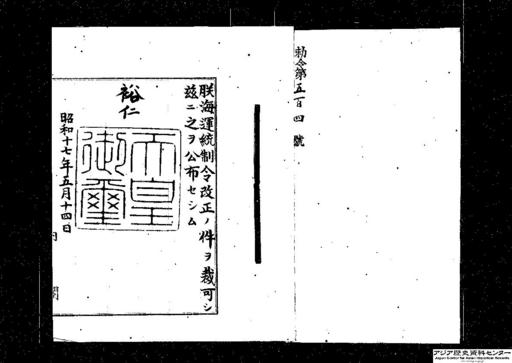 勅令第五百四號
朕海運統制令改正ノ件ヲ裁可シ
茲ニ之ヲ公布セシム
裕仁
天皇
御璽
昭和十七年五月十四日
アジア歴史資料センター
Japan Center for Asian Historical Records